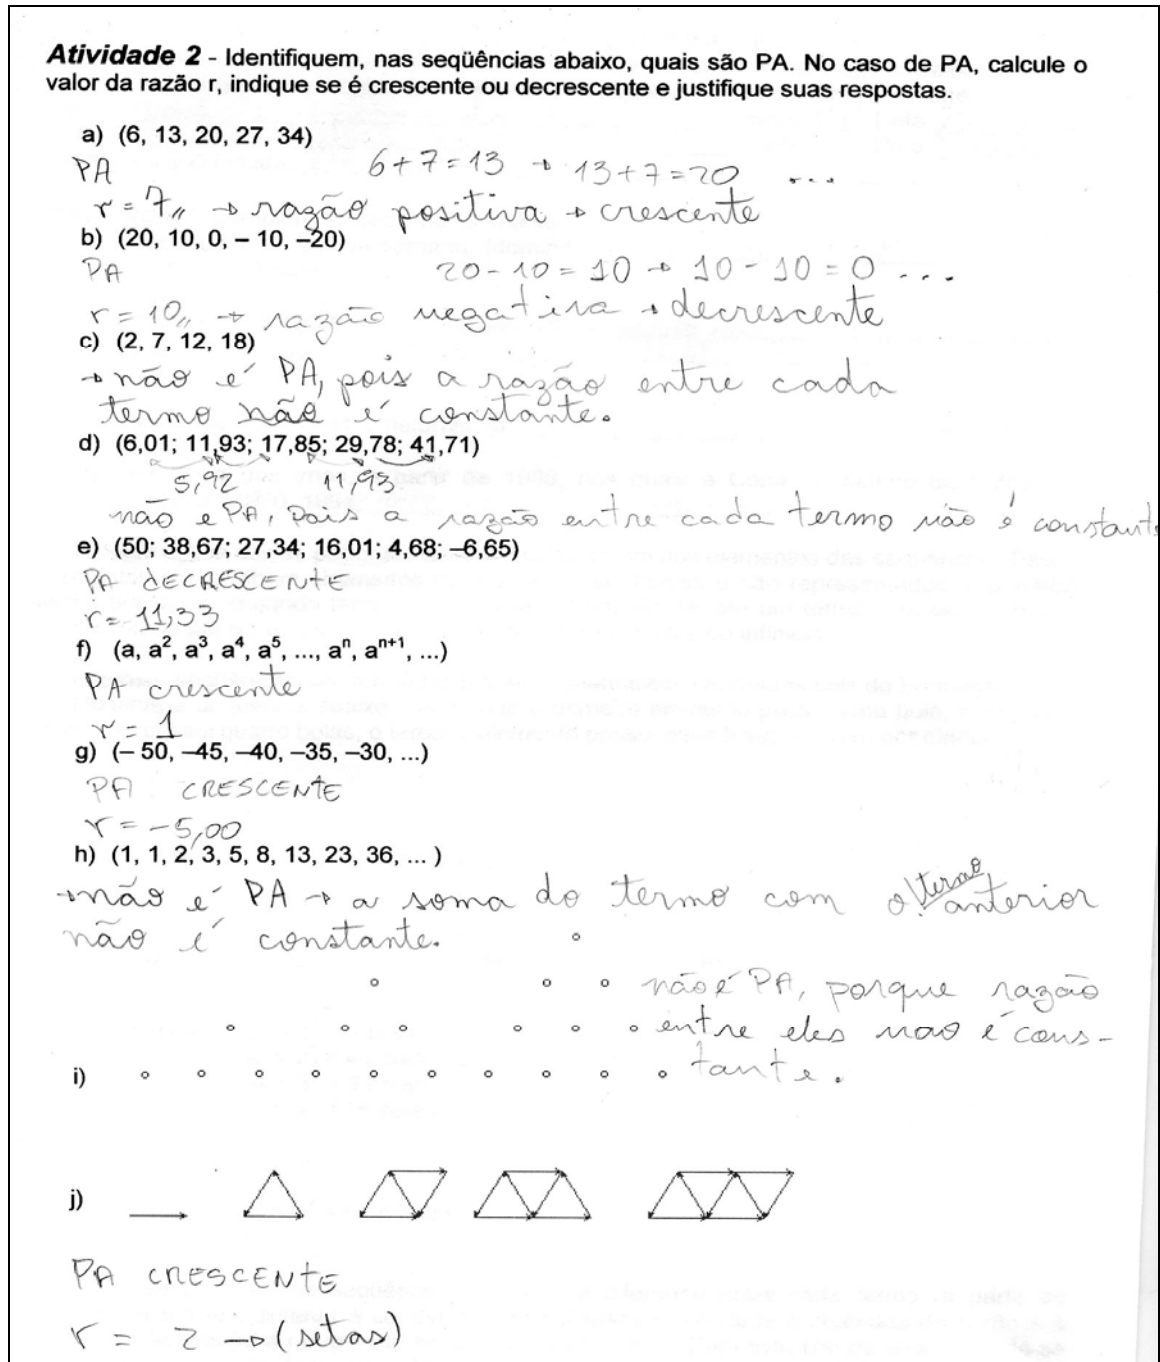 Atividade 2 - Identifiquem, nas seqüências abaixo, quais são PA. No caso de PA, calcule o
valor da razão r, indique se é crescente ou decrescente e justifique suas respostas.
a) (6, 13, 20, 27, 34)
PA 6+7=13 → 13+7=20 ...
r = 7,, → razão positiva → crescente
b) (20, 10, 0, – 10, –20)
PA 20-10=10 → 10-10=0 ...
r = 10,, → razão negativa → decrescente
c) (2, 7, 12, 18)
→ não é PA, pois a razão entre cada
termo não é constante.
d) (6,01; 11,93; 17,85; 29,78; 41,71)
5,92 11,93
não e PA, pois a razão entre cada termo não é constant
e) (50; 38,67; 27,34; 16,01; 4,68; –6,65)
PA DECRESCENTE
r=-11,33
f) (a, a², a³, a⁴, a⁵, ..., aⁿ, aⁿ⁺¹, ...)
PA crescente
r = 1
g) (– 50, –45, –40, –35, –30, ...)
PA CRESCENTE
r = -5,00
h) (1, 1, 2, 3, 5, 8, 13, 23, 36, ... )
→não é PA → a soma do termo com o termo anterior
não é constante.
não é PA, porque razão
entre eles nao é cons-
i) tante.
j)
PA CRESCENTE
r = 2 → (setas)